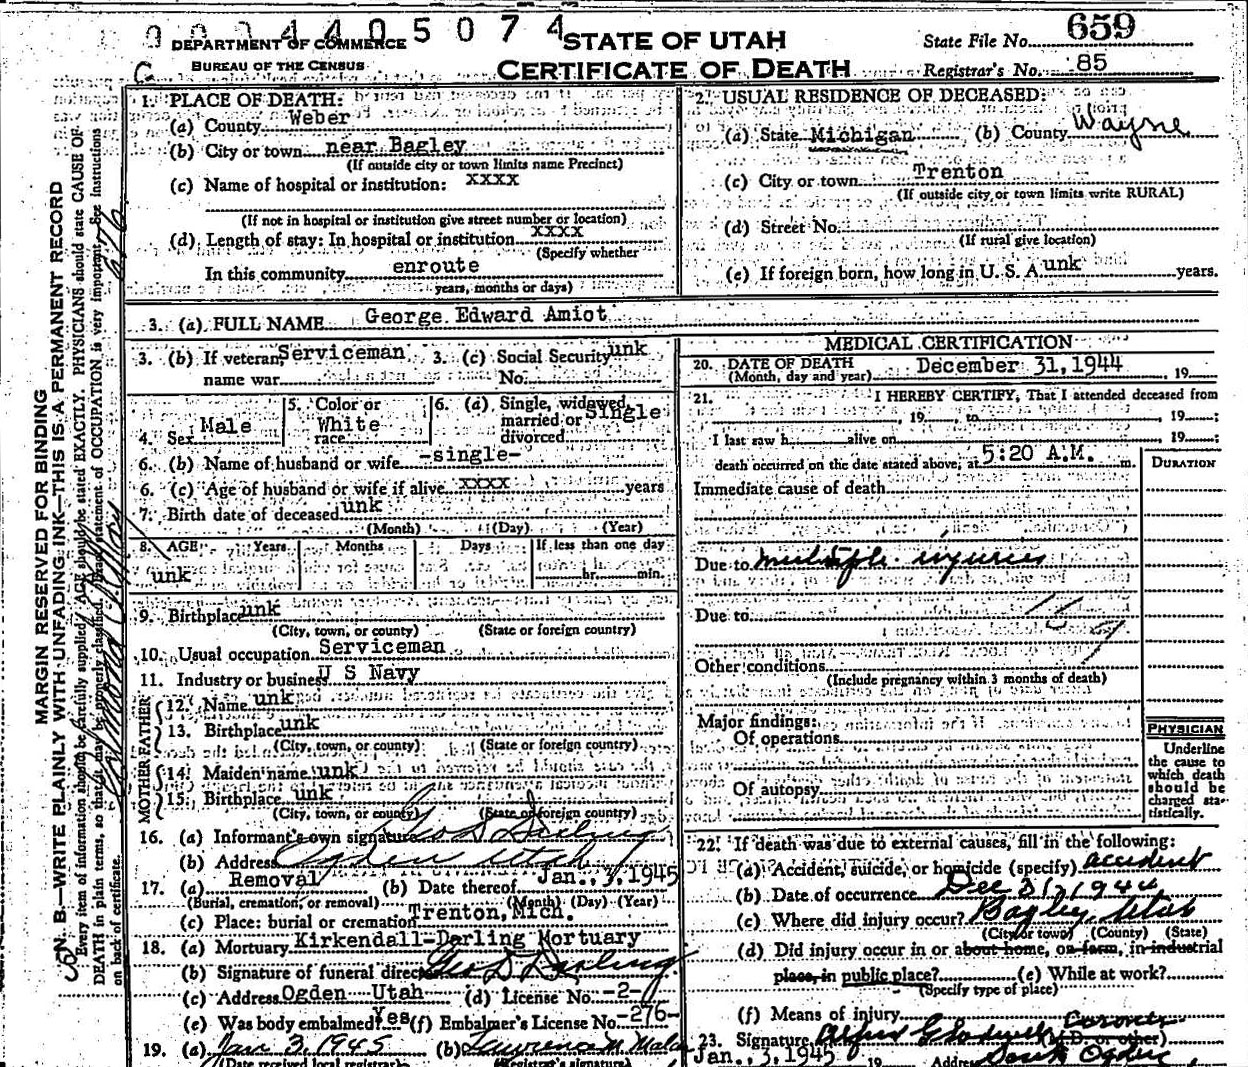 0004405074
DEPARTMENT OF COMMERCE
BUREAU OF THE CENSUS
STATE OF UTAH
CERTIFICATE OF DEATH
State File No. 659
Registrar's No. 85
MARGIN RESERVED FOR BINDING
N. B.—WRITE PLAINLY WITH UNFADING INK—THIS IS A PERMANENT RECORD
Every item of information should be carefully supplied. AGE should be stated EXACTLY. PHYSICIANS should state CAUSE OF
DEATH in plain terms, so that it may be properly classified. Exact statement of OCCUPATION is very important. See instructions
on back of certificate.
1. PLACE OF DEATH:
(a) County Weber
(b) City or town near Bagley
(If outside city or town limits name Precinct)
(c) Name of hospital or institution: xxxx
(If not in hospital or institution give street number or location)
(d) Length of stay: In hospital or institution xxxx
(Specify whether
In this community enroute
years, months or days)
2. USUAL RESIDENCE OF DECEASED:
(a) State Michigan (b) County Wayne
(c) City or town Trenton
(If outside city or town limits write RURAL)
(d) Street No.
(If rural give location)
(e) If foreign born, how long in U. S. A. unk years.
3. (a) FULL NAME George Edward Amiot
3. (b) If veteran, Serviceman 3. (c) Social Security unk
name war No.
4. Sex Male 5. Color or race White 6. (a) Single, widowed, married or divorced Single
6. (b) Name of husband or wife -single-
6. (c) Age of husband or wife if alive xxxx years
7. Birth date of deceased unk
(Month) (Day) (Year)
8. AGE Years Months Days If less than one day
unk hr. min.
9. Birthplace unk
(City, town, or county) (State or foreign country)
10. Usual occupation Serviceman
11. Industry or business U S Navy
FATHER
12. Name unk
13. Birthplace unk
(City, town, or county) (State or foreign country)
MOTHER
14. Maiden name unk
15. Birthplace unk
(City, town, or county) (State or foreign country)
16. (a) Informant's own signature Geo D Darling
(b) Address Ogden Utah
17. (a) Removal (b) Date thereof Jan., 3, 1945
(Burial, cremation, or removal) (Month) (Day) (Year)
(c) Place: burial or cremation Trenton, Mich.
18. (a) Mortuary Kirkendall-Darling Mortuary
(b) Signature of funeral director Geo D Darling
(c) Address Ogden Utah (d) License No. -2-
(e) Was body embalmed? Yes (f) Embalmer's License No. -276-
19. (a) Jan 3, 1945 (b) Lawrence N Malan
(Date received local registrar) (Registrar's signature)
MEDICAL CERTIFICATION
20. DATE OF DEATH
(Month, day and year) December 31, 1944, 19
21. I HEREBY CERTIFY, That I attended deceased from
, 19 , to , 19 ;
I last saw h alive on , 19 ;
death occurred on the date stated above, at 5:20 A.M. m.
DURATION
Immediate cause of death
Due to multiple injuries
Due to
169
Other conditions
(Include pregnancy within 3 months of death)
Major findings:
Of operations
Of autopsy
PHYSICIAN
Underline
the cause to
which death
should be
charged sta-
tistically.
22. If death was due to external causes, fill in the following:
(a) Accident, suicide, or homicide (specify) accident
(b) Date of occurrence Dec 31, 1944
(c) Where did injury occur? Bagley Utah
(City or town) (County) (State)
(d) Did injury occur in or about home, on farm, in industrial
place, in public place? (e) While at work?
(Specify type of place)
(f) Means of injury
23. Signature Coroner
(M.D. or other)
Jan., 3, 1945 19 Address South Ogden